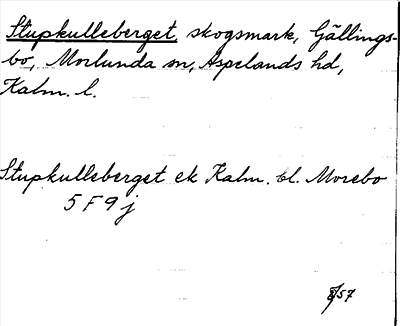 Stupkulleberget, skogsmark, Gällings-
bo, Morlunda sn, Aspelands hd,
Kalm. l.
Stupkulleberget ek Kalm. bl. Morebo
5 F 9 j
57